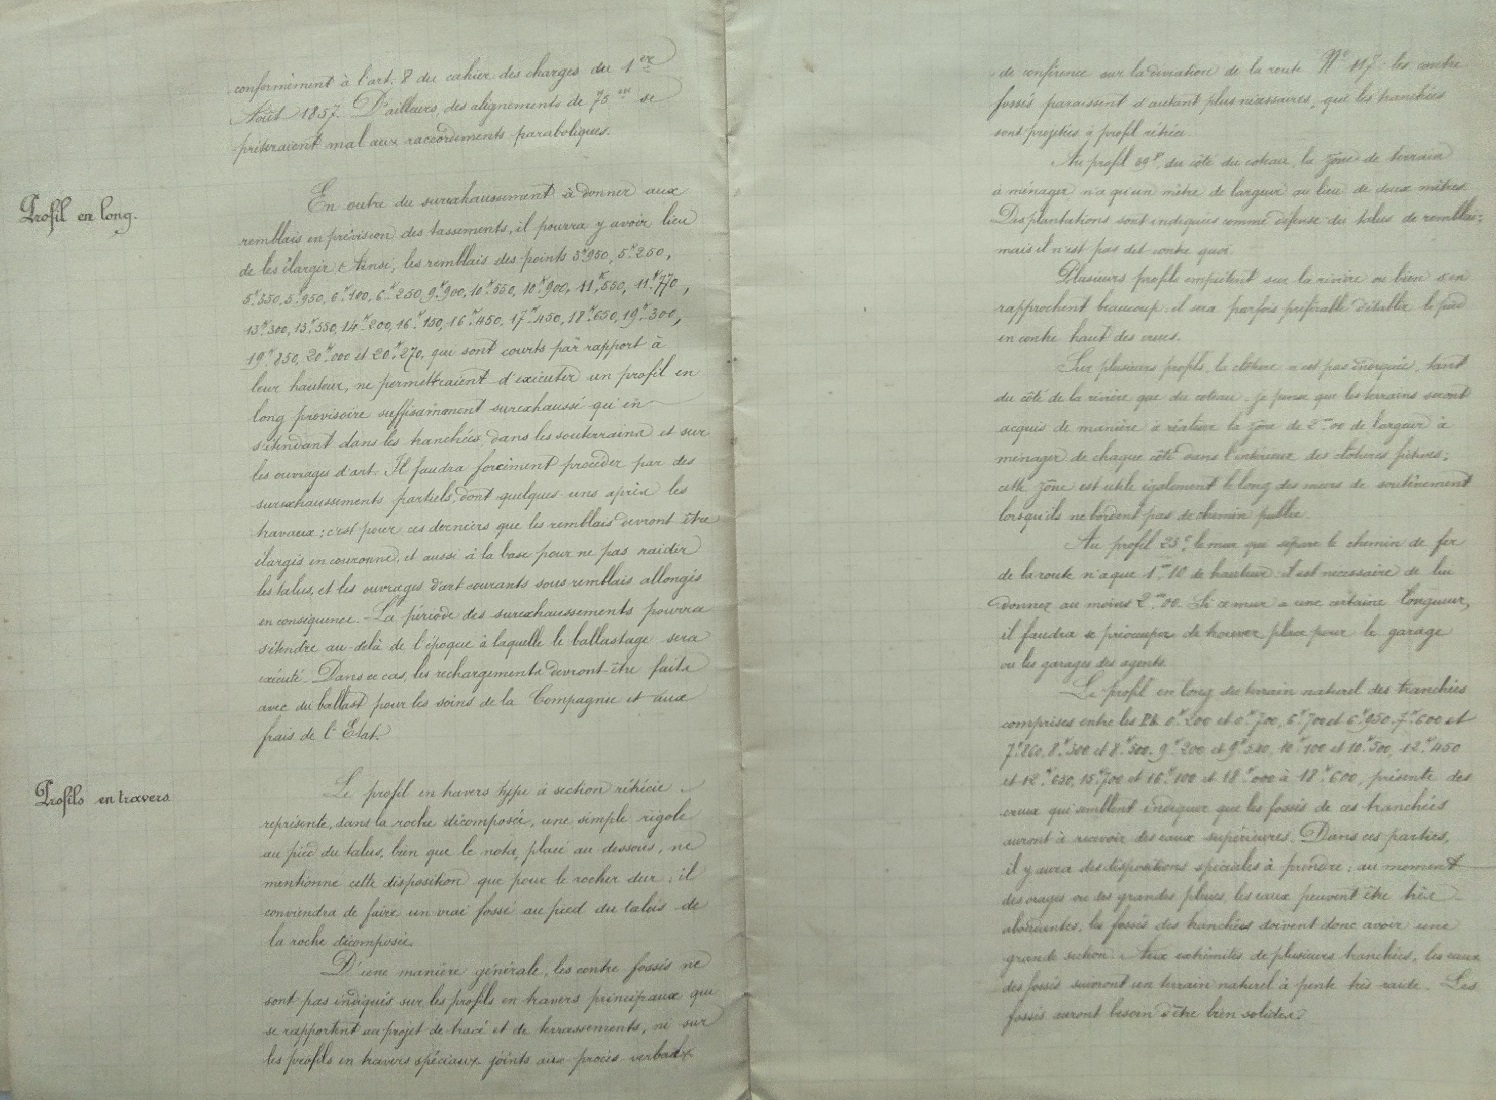 conformément à l'art. 8 du cahier des charges du 1er
Août 1857. D'ailleurs, des alignements de 75m se
prêteraient mal aux raccordements paraboliques.
Profil en long.
En outre du surexhaussement à donner aux
remblais en prévision des tassements, il pourra y avoir lieu
de les élargir. Ainsi, les remblais des points 3k950, 5k250,
5k350, 5k950, 6k100, 6k250, 9k900, 10k550, 10k900, 11k550, 11k770,
13k300, 13k550, 14k200, 16k150, 16k450, 17k450, 18k650, 19k300,
19k850, 20k000 et 20k270, qui sont courts par rapport à
leur hauteur, ne permettraient d'exécuter un profil en
long provisoire suffisamment surexhaussé qu'en
s'étendant dans les tranchées, dans les souterrains et sur
les ouvrages d'art. Il faudra forcément procéder par des
surexhaussements partiels, dont quelques uns après les
travaux; c'est pour ces derniers que les remblais devront être
élargis en couronne, et aussi à la base pour ne pas raidir
les talus, et les ouvrages d'art courants sous remblais allongés
en conséquence. - La période des surexhaussements pourra
s'étendre au-delà de l'époque à laquelle le ballastage sera
exécuté. Dans ce cas, les rechargements devront être faits
avec du ballast pour les soins de la Compagnie et aux
frais de l'Etat.
Profils en travers
Le profil en travers type à section rétrécie
représente, dans la roche décomposée, une simple rigole
au pied du talus, bien que la note, placée au dessous, ne
mentionne cette disposition que pour le rocher dur; il
conviendra de faire un vrai fossé au pied du talus de
la roche décomposée.
D'une manière générale, les contre fossés ne
sont pas indiqués sur les profils en travers principaux qui
se rapportent au projet de tracé et de terrassements, ni sur
les profils en travers spéciaux joints aux procès verbaux
de conférence sur la déviation de la route No 117; les contre
fossés paraissent d'autant plus nécessaires, que les tranchées
sont projetées à profil rétréci.
Au profil 69 du côté du coteau, la zône de terrain
à ménager n'a qu'un mètre de largeur au lieu de deux mètres.
Des plantations sont indiquées comme défense des talus de remblai;
mais il n'est pas dit contre quoi.
Plusieurs profils empiètent sur la rivière ou bien s'en
rapprochent beaucoup; il sera parfois préférable d'établir le pied
en contre haut des crues.
Sur plusieurs profils, la clôture n'est pas indiquée, tant
du côté de la rivière que du coteau. Je pense que les terrains seront
acquis de manière à réaliser la zône de 2m00 de largeur à
ménager de chaque côté dans l'intérieur des clôtures fictives;
cette zône est utile également le long des murs de soutènement
lorsqu'ils ne bordent pas de chemin public.
Au profil 23 le mur qui sépare le chemin de fer
de la route n'a que 1m10 de hauteur. Il est nécessaire de lui
donner au moins 2m00. Si ce mur a une certaine longueur,
il faudra se préoccuper de trouver place pour le garage
ou les garages des agents.
Le profil en long du terrain naturel des tranchées
comprises entre les P.k. 0k200 et 0k700, 6k700 et 6k950, 7k600 et
7k860, 8k300 et 8k500, 9k200 et 9k520, 10k100 et 10k500, 12k450
et 12k650, 15k700 et 16k100 et 18k000 à 18k600, présente des
creux qui semblent indiquer que les fossés de ces tranchées
auront à recevoir des eaux supérieures. Dans ces parties,
il y aura des dispositions spéciales à prendre; au moment
des orages ou des grandes pluies, les eaux peuvent être très
abondantes, les fossés des tranchées doivent donc avoir une
grande section. Aux extrémités de plusieurs tranchées, les eaux
des fossés suivront un terrain naturel à pente très raide. Les
fossés auront besoin d'être bien solides.